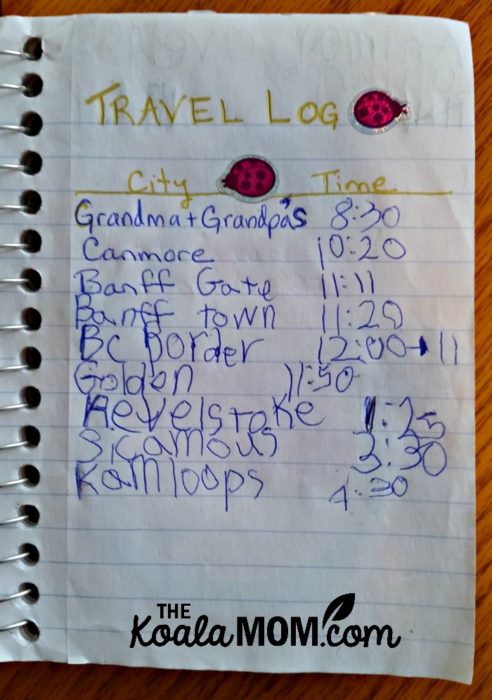 TRAVEL LOG
City Time
Grandma + Grandpa's 8:30
Canmore 10:20
Banff Gate 11:11
Banff town 11:20
BC border 12:00→11
Golden 11:50
Revelstoke 1:25
Sicamous 3:30
Kamloops 4:30
THE
KoalaMOM.com